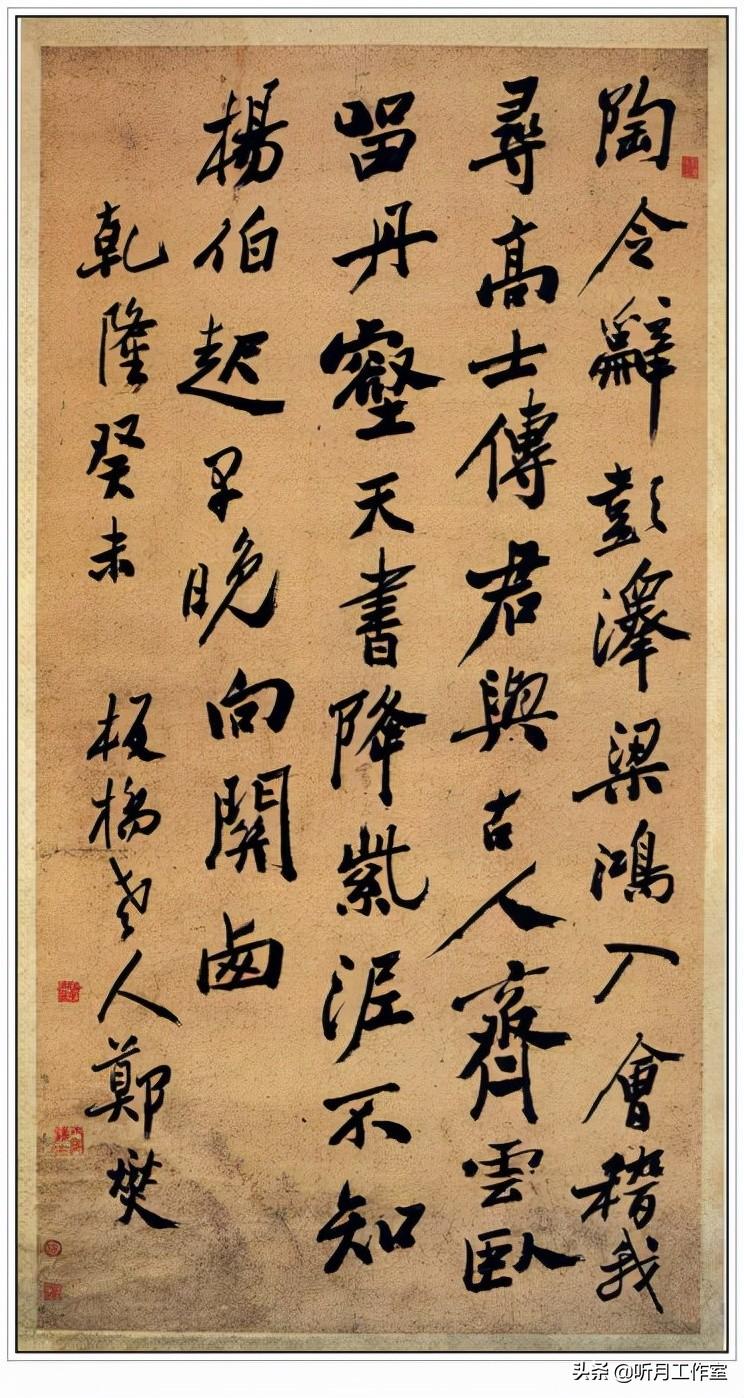 陶令辭彭澤梁鴻入會稽我
尋高士傳君與古人齊雲臥
留丹壑天書降紫泥不知
楊伯起早晚向關西
乾隆癸未 板橋老人鄭燮
头条 @听月工作室